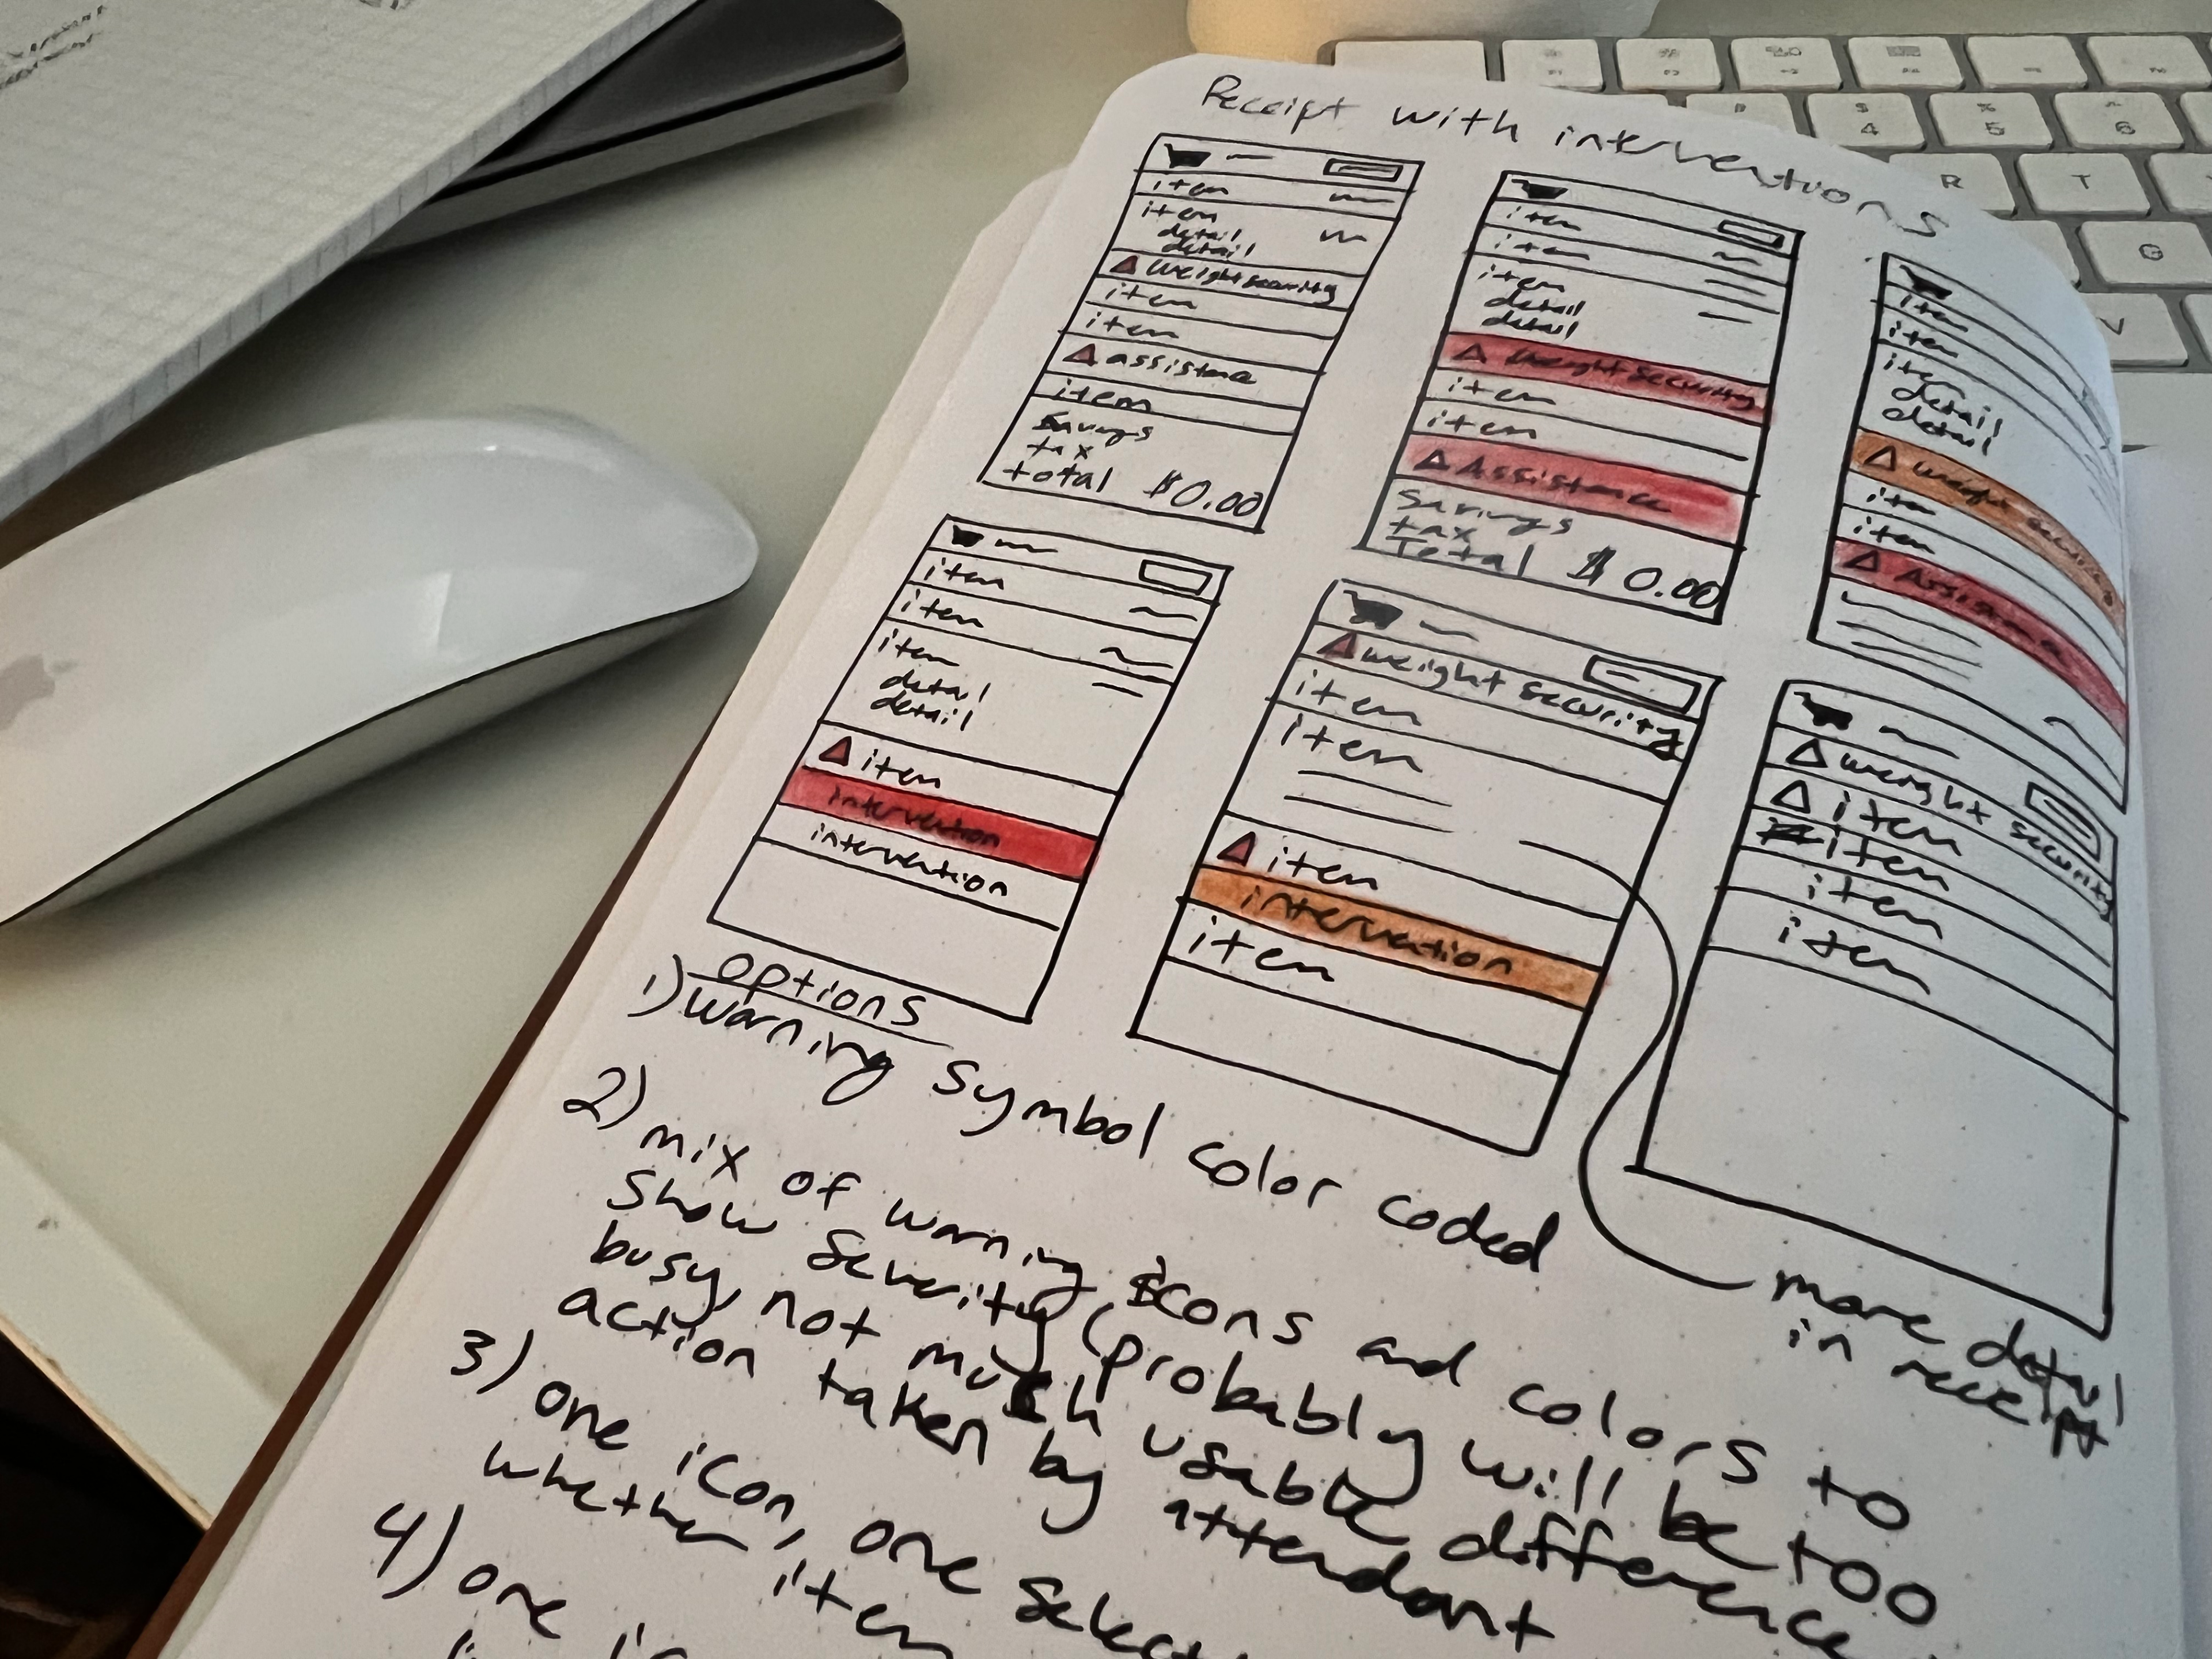 Receipt with interventions
item
item
detail
detail
weight security
item
item
assistance
item
Savings
tax
total $0.00
item
item
item
detail
detail
Weight Security
item
item
Assistance
Savings
tax
Total $0.00
item
item
item
detail
detail
weight
item
item
Assistance
item
item
item
detail
detail
item
intervention
intervention
weight security
item
item
item
intervention
item
weight security
item
item
item
item
options
1) warning symbol color coded
2) mix of warning icons and colors to
show severity (probably will be too
busy, not much usable difference
action taken by attendant
3) one icon, one
whether item
4) one
more detail
in receipt
$
4
%
5
^
6
R
T
G
V